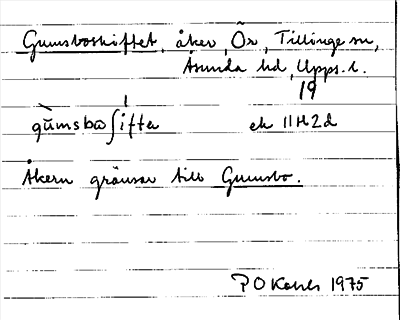 Gumsboskiftet, åker, Ör, Tillinge sn,
Åsunda hd, Upps. l.
19
gùmsbωʃífte ek 11H2d
Åkern gränsar till Gumsbo.
P O 1975